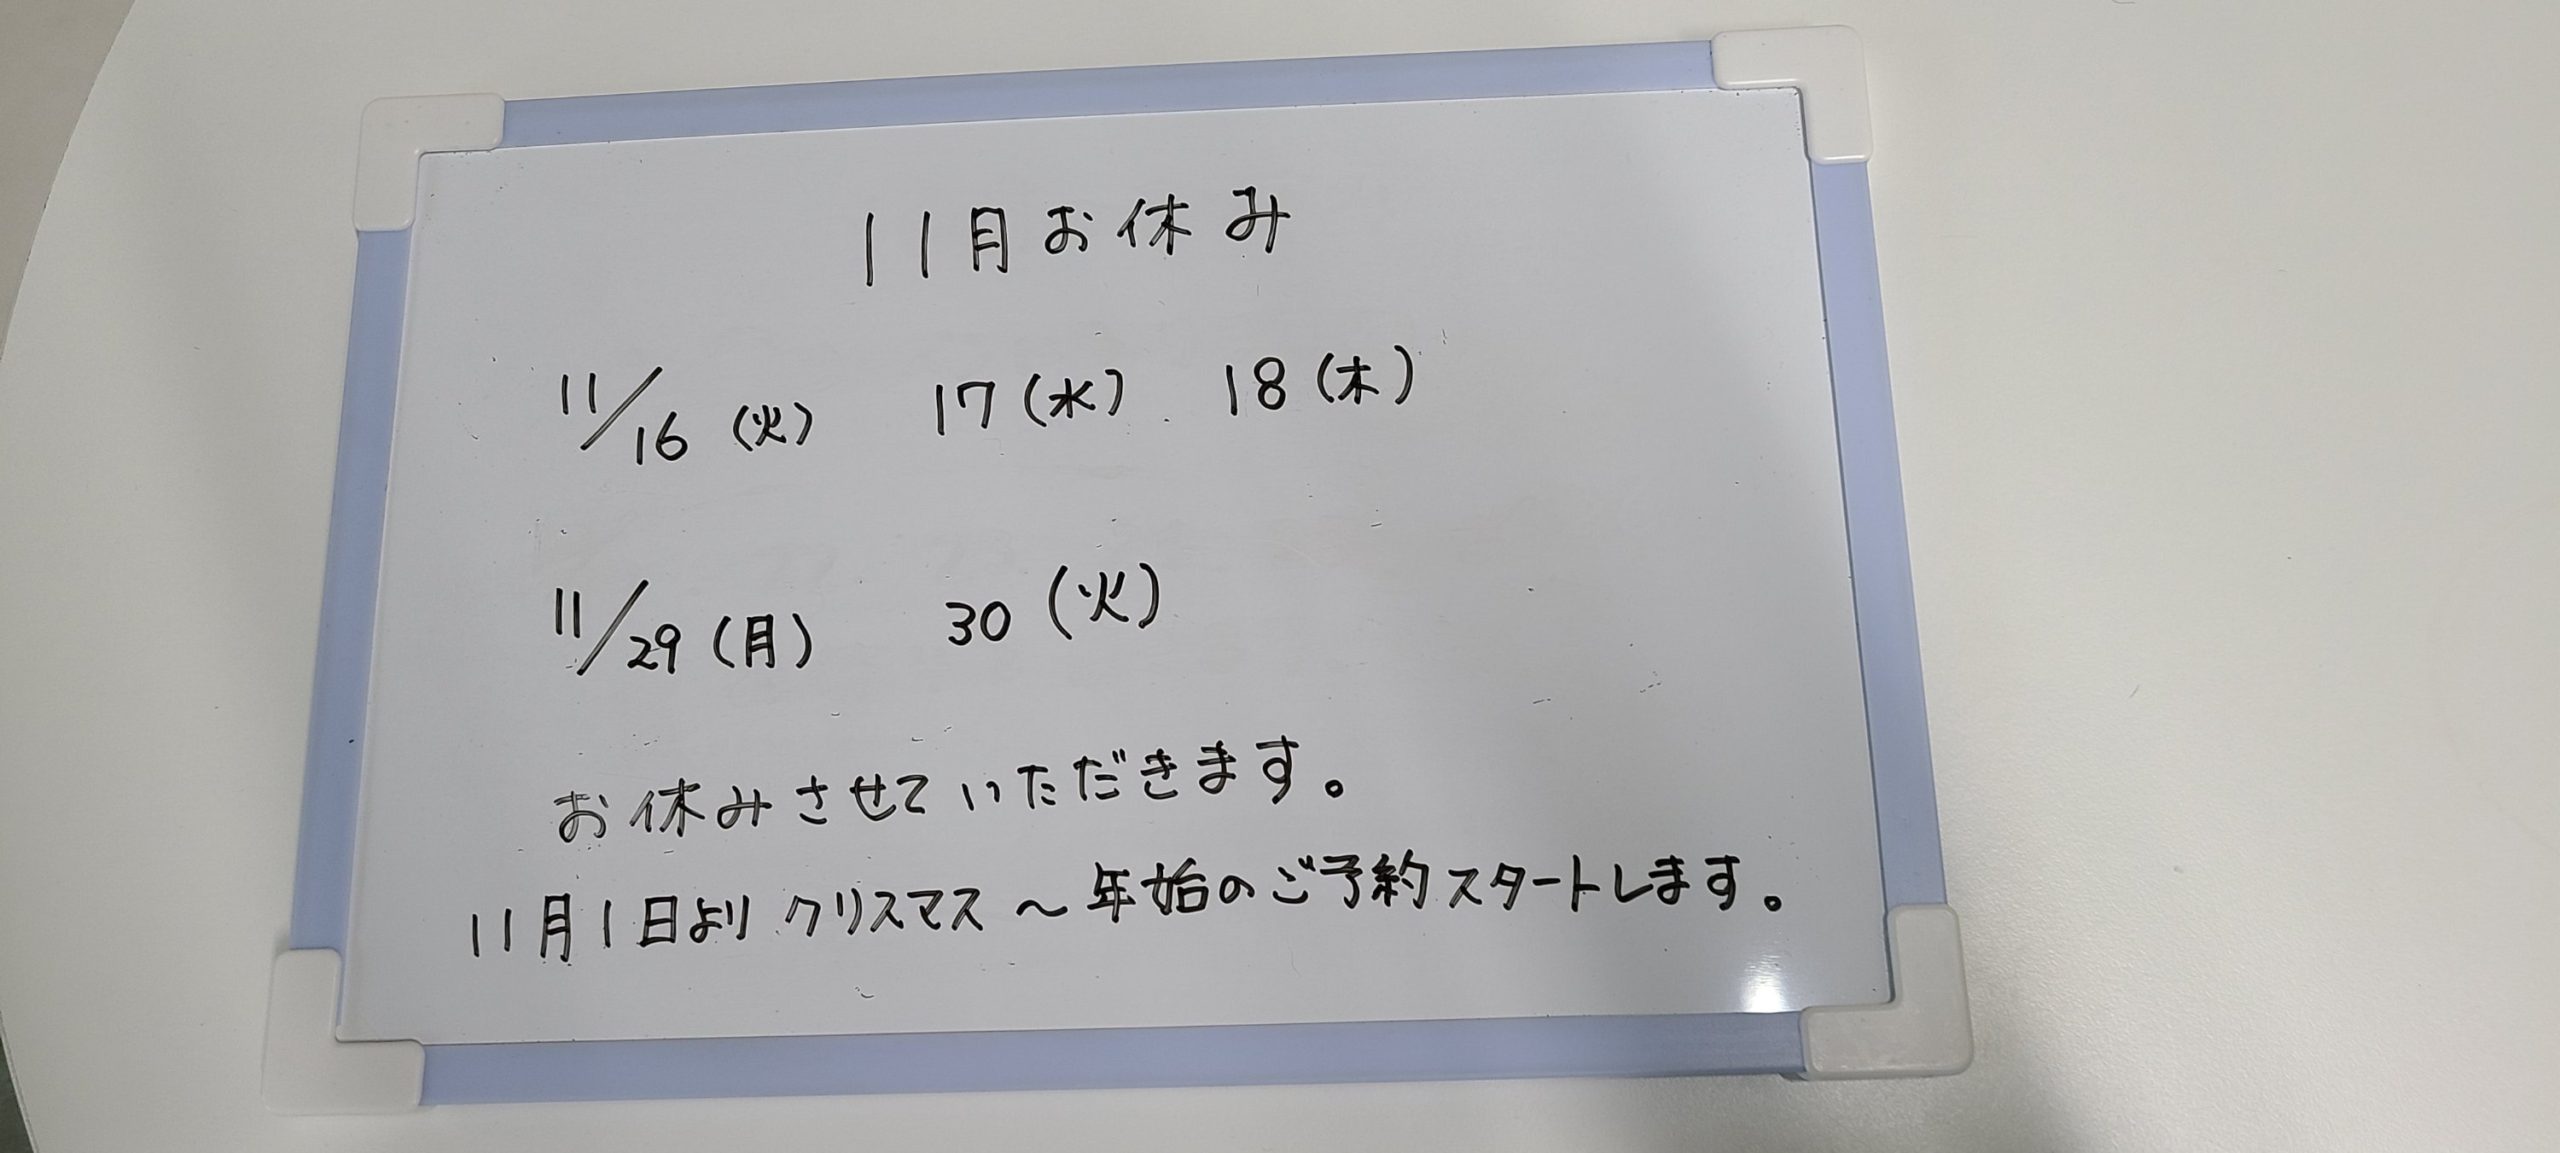 11月お休み
11/16(火) 17(水) 18(木)
11/29(月) 30(火)
お休みさせていただきます。
11月1日よりクリスマス～年始のご予約スタートします。